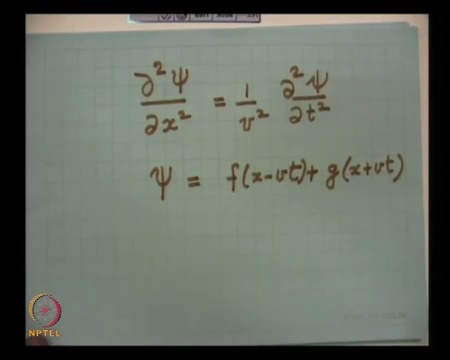 ∂²Ψ/∂x² = 1/v² ∂²Ψ/∂t²
Ψ = f(x-vt)+ g(x+vt)
NPTEL